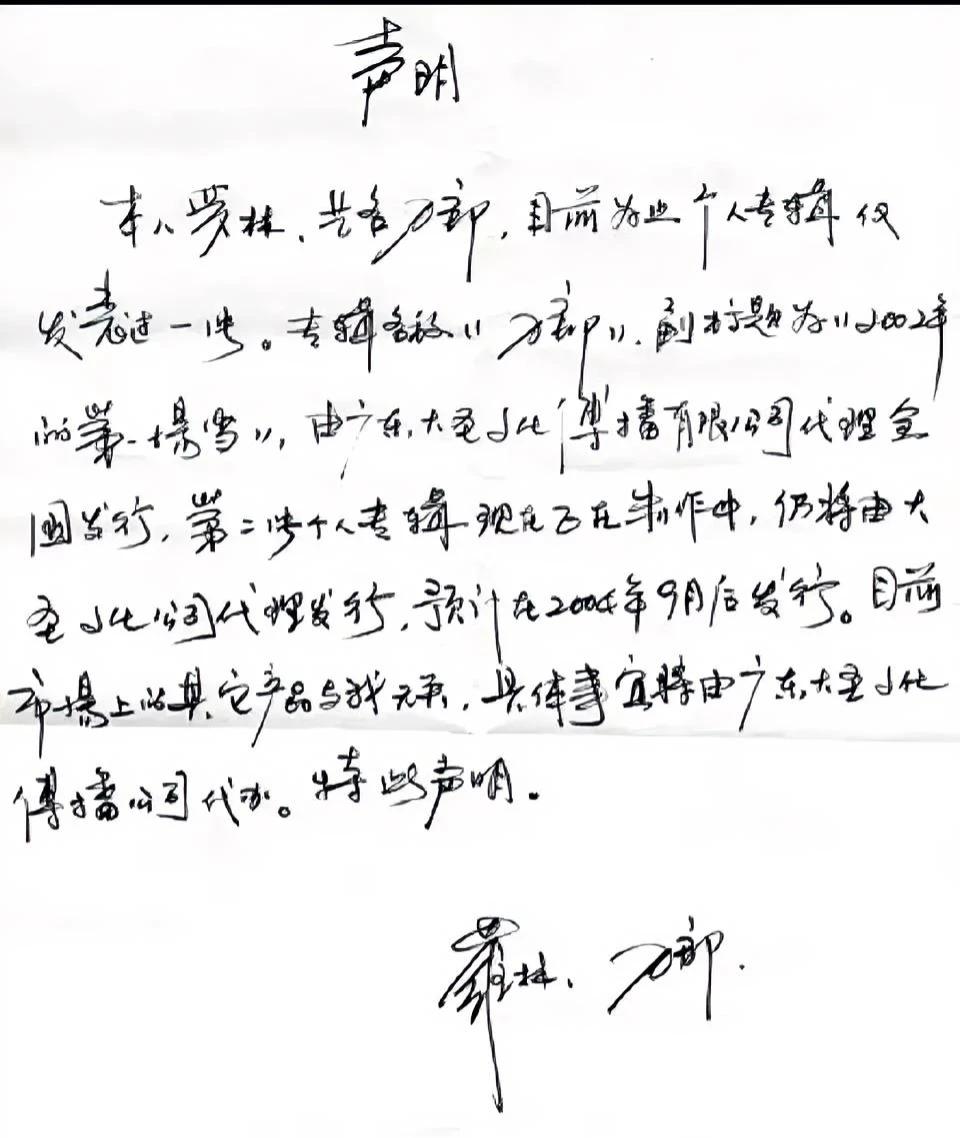 声明
本人罗林、艺名刀郎，目前为止个人专辑仅
发表过一张。专辑名称"刀郎"，副标题为"2002年
的第一场雪"，由广东大圣文化传播有限公司代理全
国发行，第二张个人专辑现在正在制作中，仍将由大
圣文化公司代理发行，预计在2004年9月后发行。目前
市场上的其它产品与我无关，具体事宜将由广东大圣文化
传播公司代办。特此声明。
罗林、刀郎.